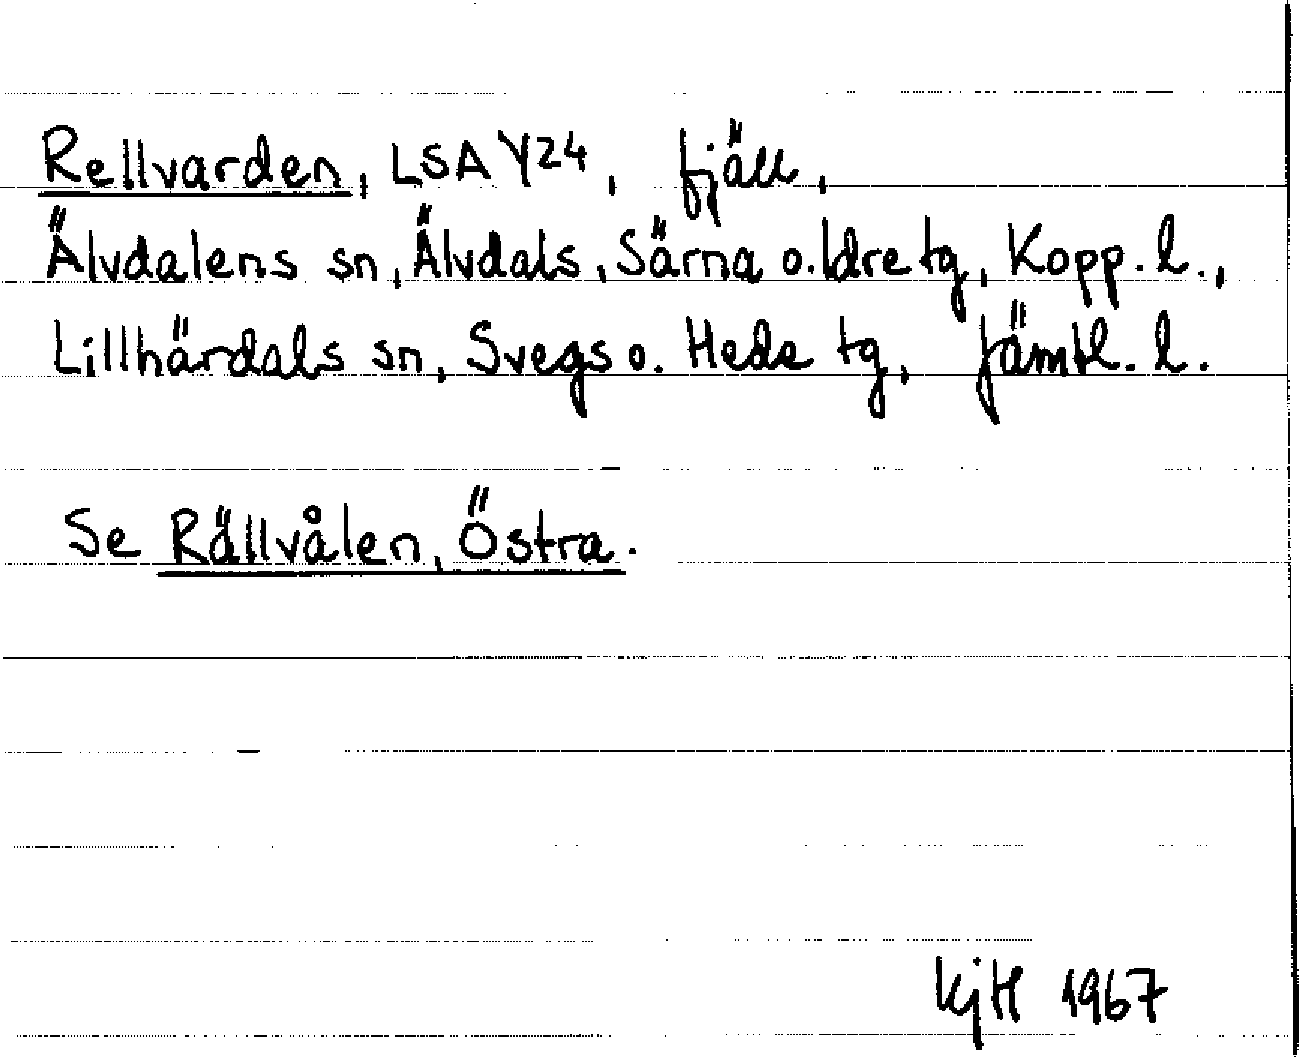 Rellvarden, LSA Y24, fjäll,
Älvdalens sn, Älvdals, Särna o. Idre tg, Kopp. l.,
Lillhärdals sn, Svegs o. Heds tg, Jämtl. l.
Se Rällvålen, Östra.
KjH 1967